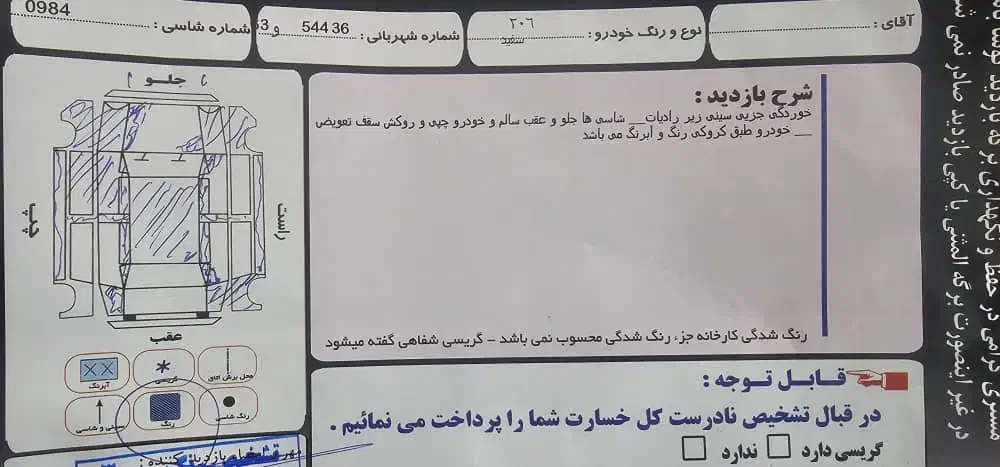 آقای :
نوع و رنگ خودرو :
٢٠٦
سفید
شماره شهربانی :
544 36
و 63
شماره شاسی :
0984
جلو
چپ
راست
عقب
محل برش اتاق
گریسی
آبرنگ
رنگ شاسی
رنگ
سینی و شاسی
شرح بازدید :
خوردگی جزیی سینی زیر رادیات__ شاسی ها جلو و عقب سالم و خودرو چپی و روکش سقف تعویض
__ خودرو طبق کروکی رنگ و آبرنگ می باشد
رنگ شدگی کارخانه جز، رنگ شدگی محسوب نمی باشد – گریسی شفاهی گفته میشود
قابل توجه :
در قبال تشخیص نادرست کل خسارت شما را پرداخت می نمائیم .
گریسی دارد
ندارد
مشتری گرامی در حفظ و نگهداری برگه بازدید
در غیر اینصورت برگه المثنی یا کپی بازدید صادر نمی